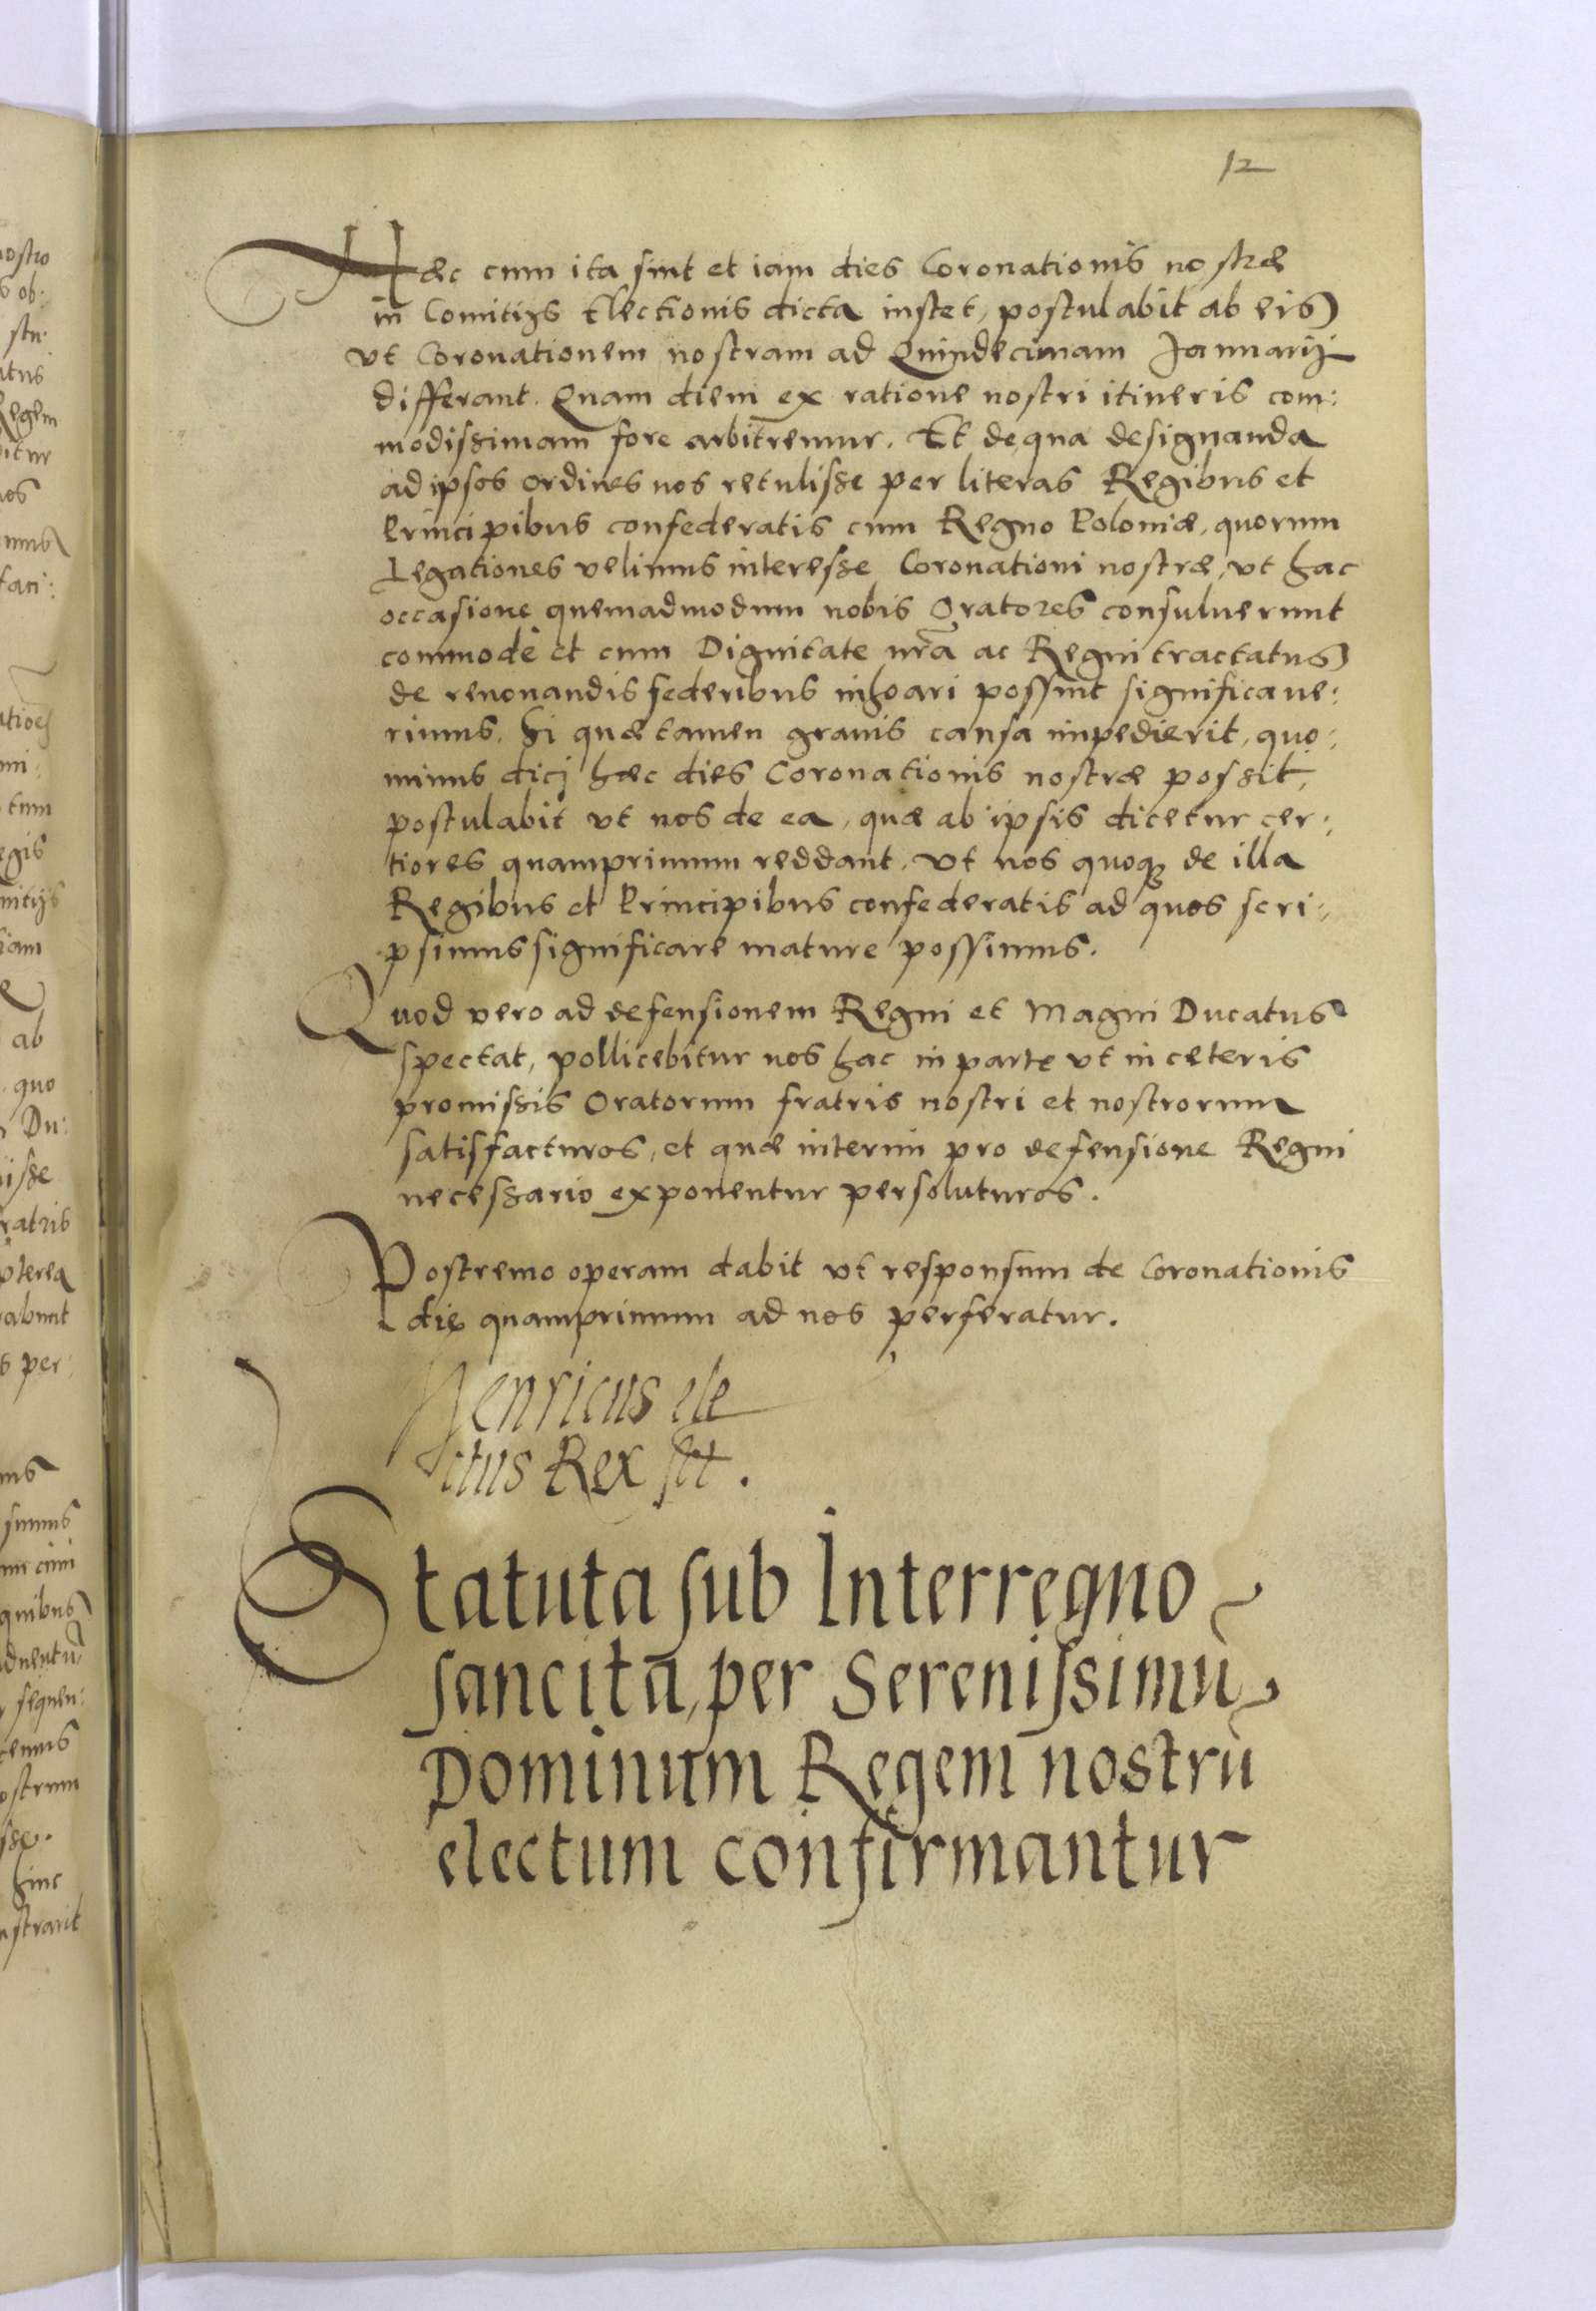 12
Hæc cum ita sint et iam dies Coronationis nostræ
in Comitijs Electionis dicta instet, postulabit ab eis
vt Coronationem nostram ad Quindecimam Januarij
differant. Quam diem ex ratione nostri itineris com:
modissimam fore arbitremur. Et de qua designanda
ad ipsos ordines nos retulisse per literas Regibus et
Principibus confederatis cum Regno Poloniæ, quorum
Legationes velimus interesse Coronationi nostræ, vt hac
occasione quemadmodum nobis Oratores consuluerunt
commodè et cum Dignitate nrã ac Regni tractatus
de renouandis federibus inhoari possint significaue:
rimus. Si quæ tamen grauis causa impedierit, quo:
minus dicj hæc dies Coronationis nostræ possit,
postulabit vt nos de ea, quæ ab ipsis dicetur cer:
tiores quamprimum reddant. Vt nos quoq; de illa
Regibus et Principibus confederatis ad quos scri:
psimus significare mature possimus.
Quod vero ad defensionem Regni et Magni Ducatus
spectat, pollicebitur nos hac in parte vt in ceteris
promissis Oratorum fratris nostri et nostrorum
satisfacturos, et quæ interim pro defensione Regni
necessario exponentur persoluturos.
Postremo operam dabit vt responsum de Coronationis
die quamprimum ad nos perferatur.
Henricus ele
ctus Rex sst.
Statuta sub Interregno
sancita, per Serenissimũ
Dominum Regem nostrũ
electum confirmantur